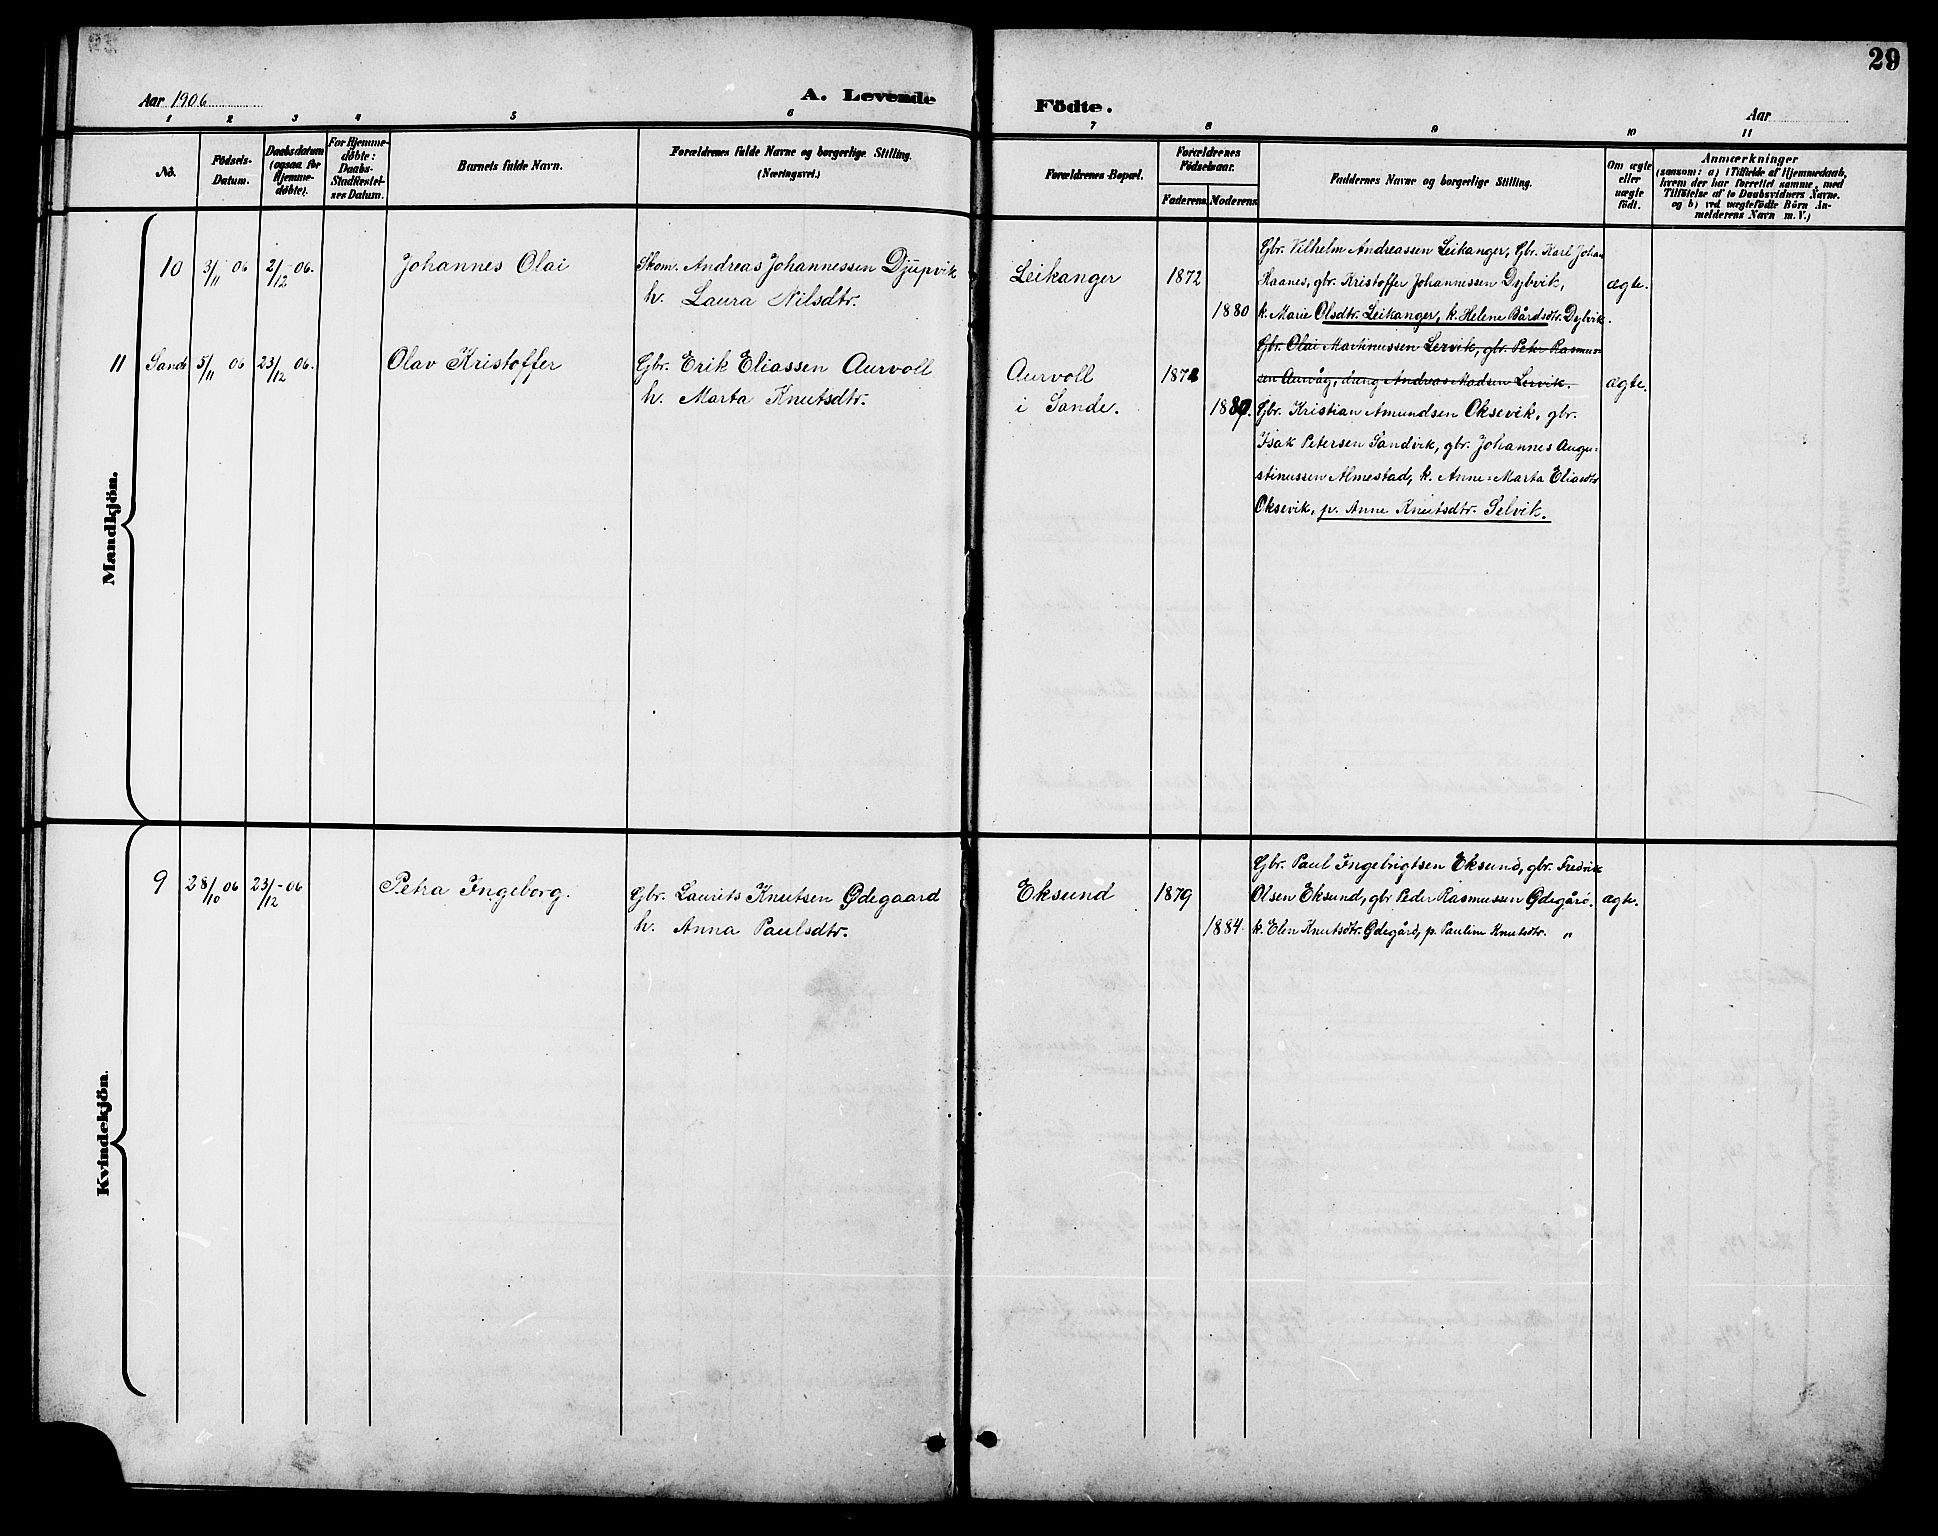 29
Aar 1906
A. Levende Födte.
Aar
1 2 3 4 5 6 7 8 9 10 11
No.
Födsels-Datum.
Daabsdatum (ogsaa for Hjemme-döbte).
For Hjemme-döbte: Daabs-Stadfestel-ses Datum.
Barnets fulde Navn.
Forældrenes fulde Navne og borgerlige Stilling.
(Næringsvei.)
Forældrenes Bopæl.
Forældrenes Födselsaar.
Faderens Moderens
Faddernes Navne og borgerlige Stilling.
Om ægte eller uægte födt.
Anmærkninger
(saasom: a) i Tilfælde af Hjemmedaab,
hvem der har forrettet samme, med
Tilföielse af to Daabsvidners Navne.
og b) ved uægtefödte Börn An-
melderens Navn m. V.)
Mandkjön.
10 3/11 06 2/12 06. Johannes Olai
Skom. Andreas Johannessen Djupvik
h. Laura Nilsdtr.
Leikanger 1872 1880
Gbr. Vilhelm Andreassen Leikanger, Gbr. Karl Johan
Haanes, gbr. Kristoffer Johannissen Dybvik,
k. Marie Olsdtr. Leikanger, k. Helene Bårdsdtr. Dybvik.
ægte.
11 Sande 5/11 06 23/12 06. Olav Kristoffer
Gbr. Erik Eliassen Aurvoll
h. Marta Knutsdtr.
Aurvoll
i Sande.
Gbr. Olai Martinussen Lervik, gbr. Peter Rasmus-
sen Aurvåg, dreng Andreas Madsen Lervik.
Gbr. Kristian Amundsen Oksevik, gbr.
Isak Petersen Sandvik, gbr. Johannes Augu-
stinussen Almestad, k. Anne-Marta Eliasdtr
Oksevik, p. Anne Knutsdtr. Selvik.
ægte.
Kvindekjön.
9 28/10 06 23/12 06 Petra Ingeborg.
Gbr. Laurits Knutsen Ødegaard
h. Anna Paulsdtr.
Eksund 1879 1884
Gbr. Paul Ingebrigtsen Eksund, gbr. Fredrik
Olsen Eksund, gbr Peder Rasmussen Ødegård.
k. Elen Knutsdtr. Ødegård, p. Pauline Knutsdtr. "
ægte.